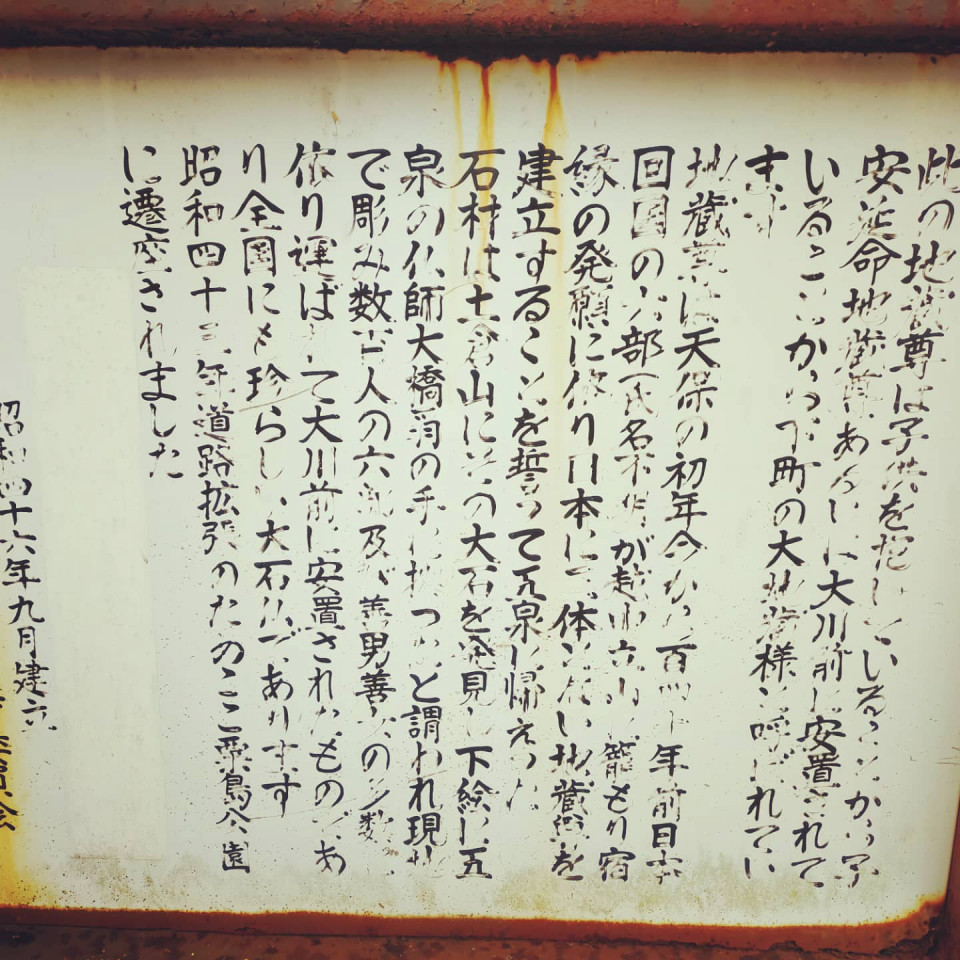 此の地蔵尊は子供を抱いているところから子
安延命地蔵尊あるいは大川前に安置されて
いることから下町の大地蔵様と呼ばれてい
ます
地蔵尊は天保の初年今から百四十年前日本
回国の六部氏名不詳が越中立山に籠もり宿
縁の発願に依り日本に二体とない地蔵尊を
建立することを誓って五泉に帰えった
石材は土倉山にその大石を発見し下絵は五
泉の仏師大橋の手に つたと謂われ現地
で彫み数百人の六部及び善男善女の多数に
依り運ばれて大川前に安置されたものであ
り全国にも珍らしい大石仏であります
昭和四十三年道路拡張のためここ粟島公園
に遷座されました
昭和四十六年九月建立